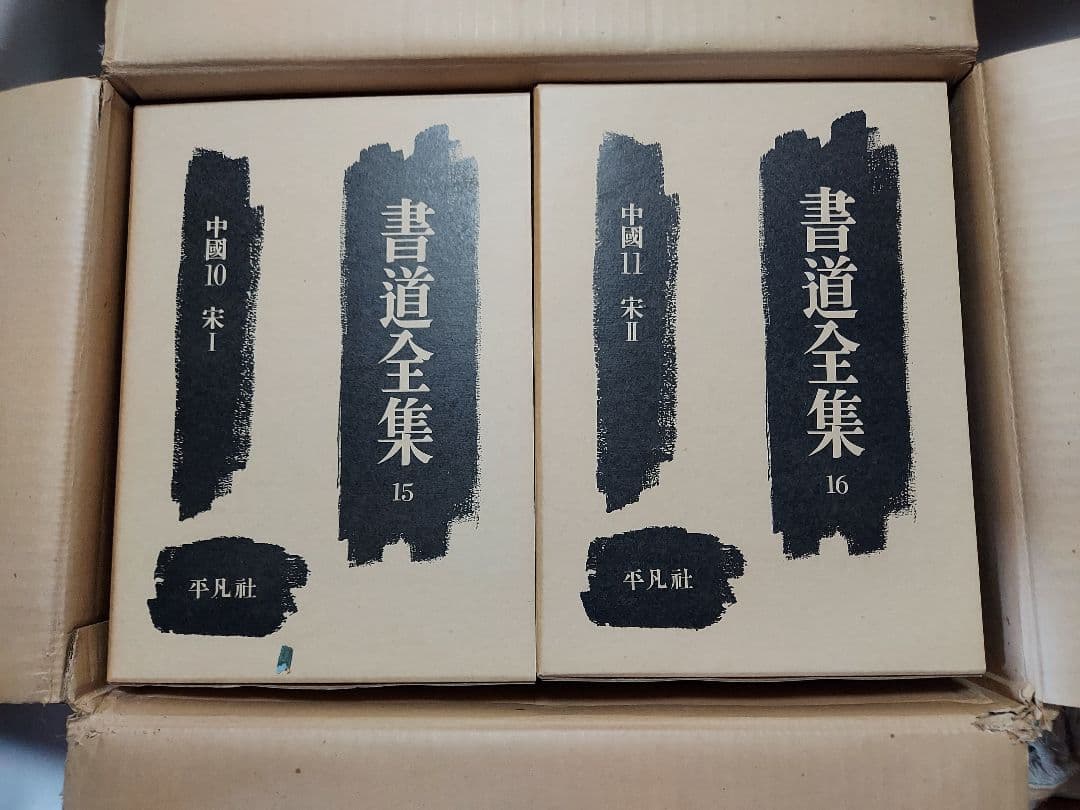 書道全集
15
中國10 宋I
平凡社
書道全集
16
中國11 宋II
平凡社